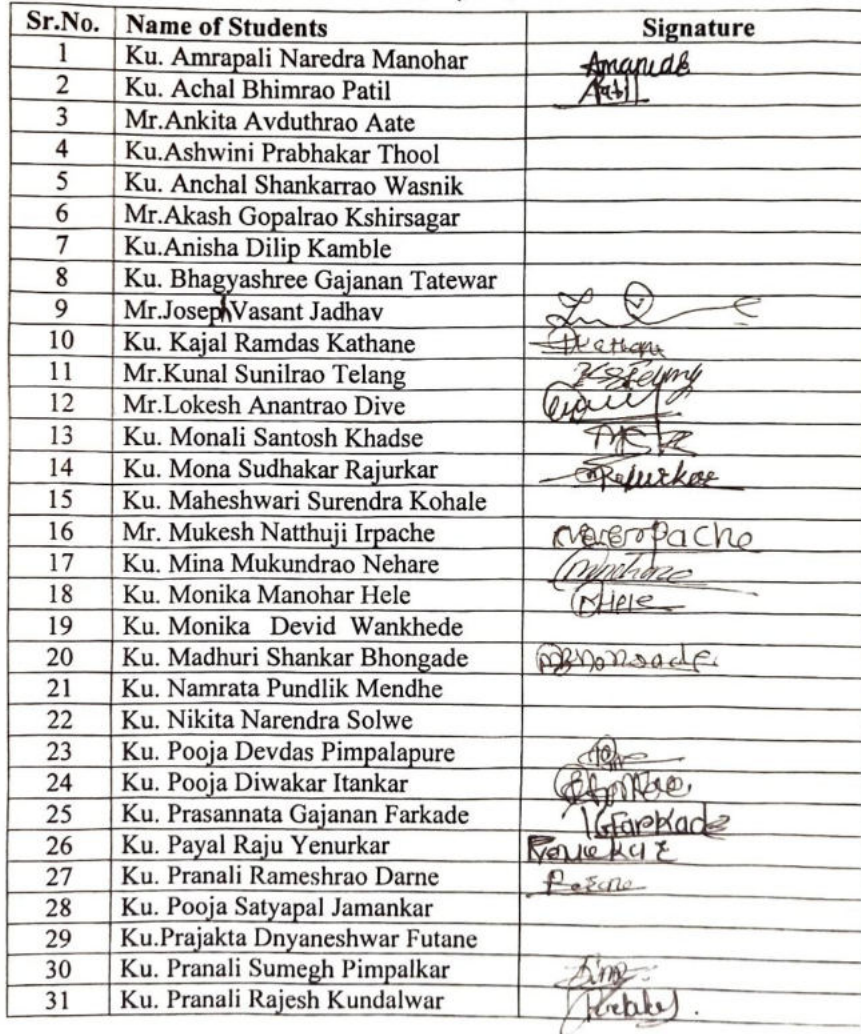 Sr.No. Name of Students Signature
1 Ku. Amrapali Naredra Manohar
2 Ku. Achal Bhimrao Patil Patil
3 Mr.Ankita Avduthrao Aate
4 Ku.Ashwini Prabhakar Thool
5 Ku. Anchal Shankarrao Wasnik
6 Mr.Akash Gopalrao Kshirsagar
7 Ku.Anisha Dilip Kamble
8 Ku. Bhagyashree Gajanan Tatewar
9 Mr.Joseph Vasant Jadhav
10 Ku. Kajal Ramdas Kathane
11 Mr.Kunal Sunilrao Telang
12 Mr.Lokesh Anantrao Dive
13 Ku. Monali Santosh Khadse
14 Ku. Mona Sudhakar Rajurkar
15 Ku. Maheshwari Surendra Kohale
16 Mr. Mukesh Natthuji Irpache
17 Ku. Mina Mukundrao Nehare
18 Ku. Monika Manohar Hele
19 Ku. Monika Devid Wankhede
20 Ku. Madhuri Shankar Bhongade
21 Ku. Namrata Pundlik Mendhe
22 Ku. Nikita Narendra Solwe
23 Ku. Pooja Devdas Pimpalapure
24 Ku. Pooja Diwakar Itankar
25 Ku. Prasannata Gajanan Farkade
26 Ku. Payal Raju Yenurkar
27 Ku. Pranali Rameshrao Darne
28 Ku. Pooja Satyapal Jamankar
29 Ku.Prajakta Dnyaneshwar Futane
30 Ku. Pranali Sumegh Pimpalkar
31 Ku. Pranali Rajesh Kundalwar